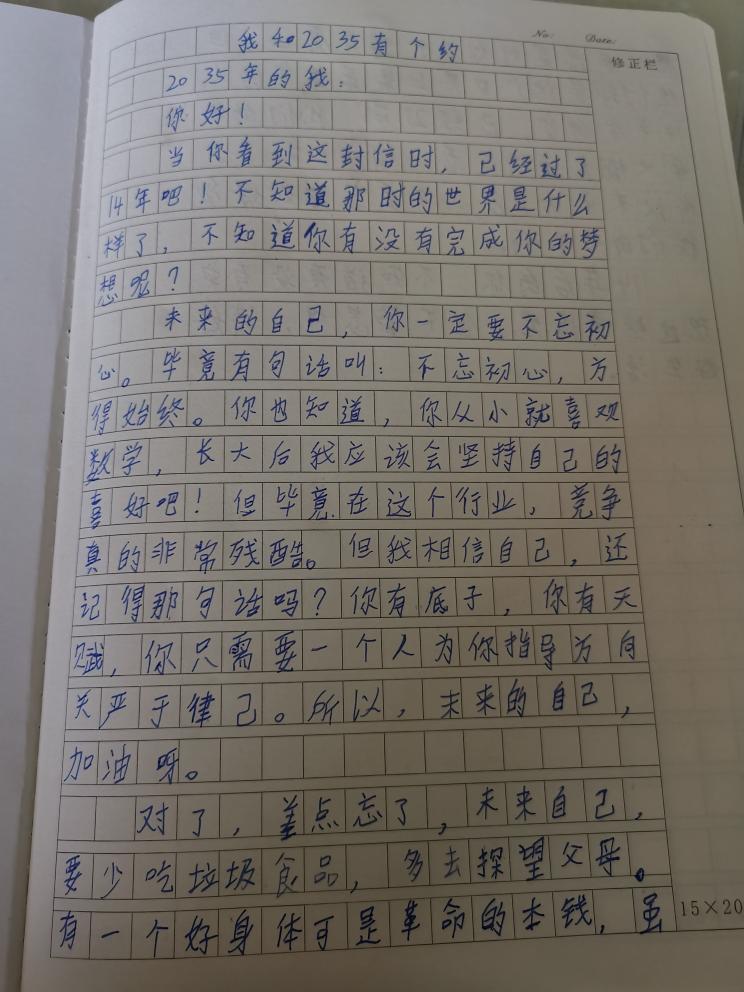 No: Date:
修正栏
我和2035有个约
2035年的我：
你好！
当你看到这封信时，已经过了
14年吧！不知道那时的世界是什么
样了，不知道你有没有完成你的梦
想呢？
未来的自己，你一定要不忘初
心。毕竟有句话叫：不忘初心，方
得始终。你也知道，你从小就喜欢
数学，长大后我应该会坚持自己的
喜好吧！但毕竟在这个行业，竞争
真的非常残酷。但我相信自己，还
记得那句话吗？你有底子，你有天
赋，你只需要一个人为你指导方向
关严于律己。所以，未来的自己，
加油呀。
对了，差点忘了，未来自己，
要少吃垃圾食品，多去探望父母。
有一个好身体可是革命的本钱，虽
15×20